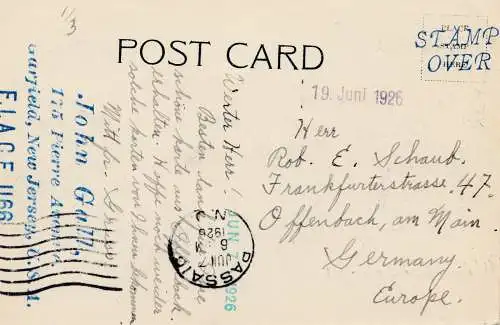 1/3
POST CARD
PLACE
STAMP
HERE
STAMP
OVER
19. Juni 1926
Herr
Rob. E. Schaub.
Frankfurterstrasse 47.
Offenbach, am Main.
Germany.
Europe.
Werter Herr!
Besten Dank
schöne karte aus Offenbach
erhalten. Hoffe noch wieder
solche karten von Ihnen bekommen
Mitt fr. Gruss
John Gall,
175 Pierre Avenue
Garfield, New Jersey, U.S.A.
E.I.A.C.E. 1166
JUN 1926
PASSAIC
N.J.
JUN 7
6 PM
1926